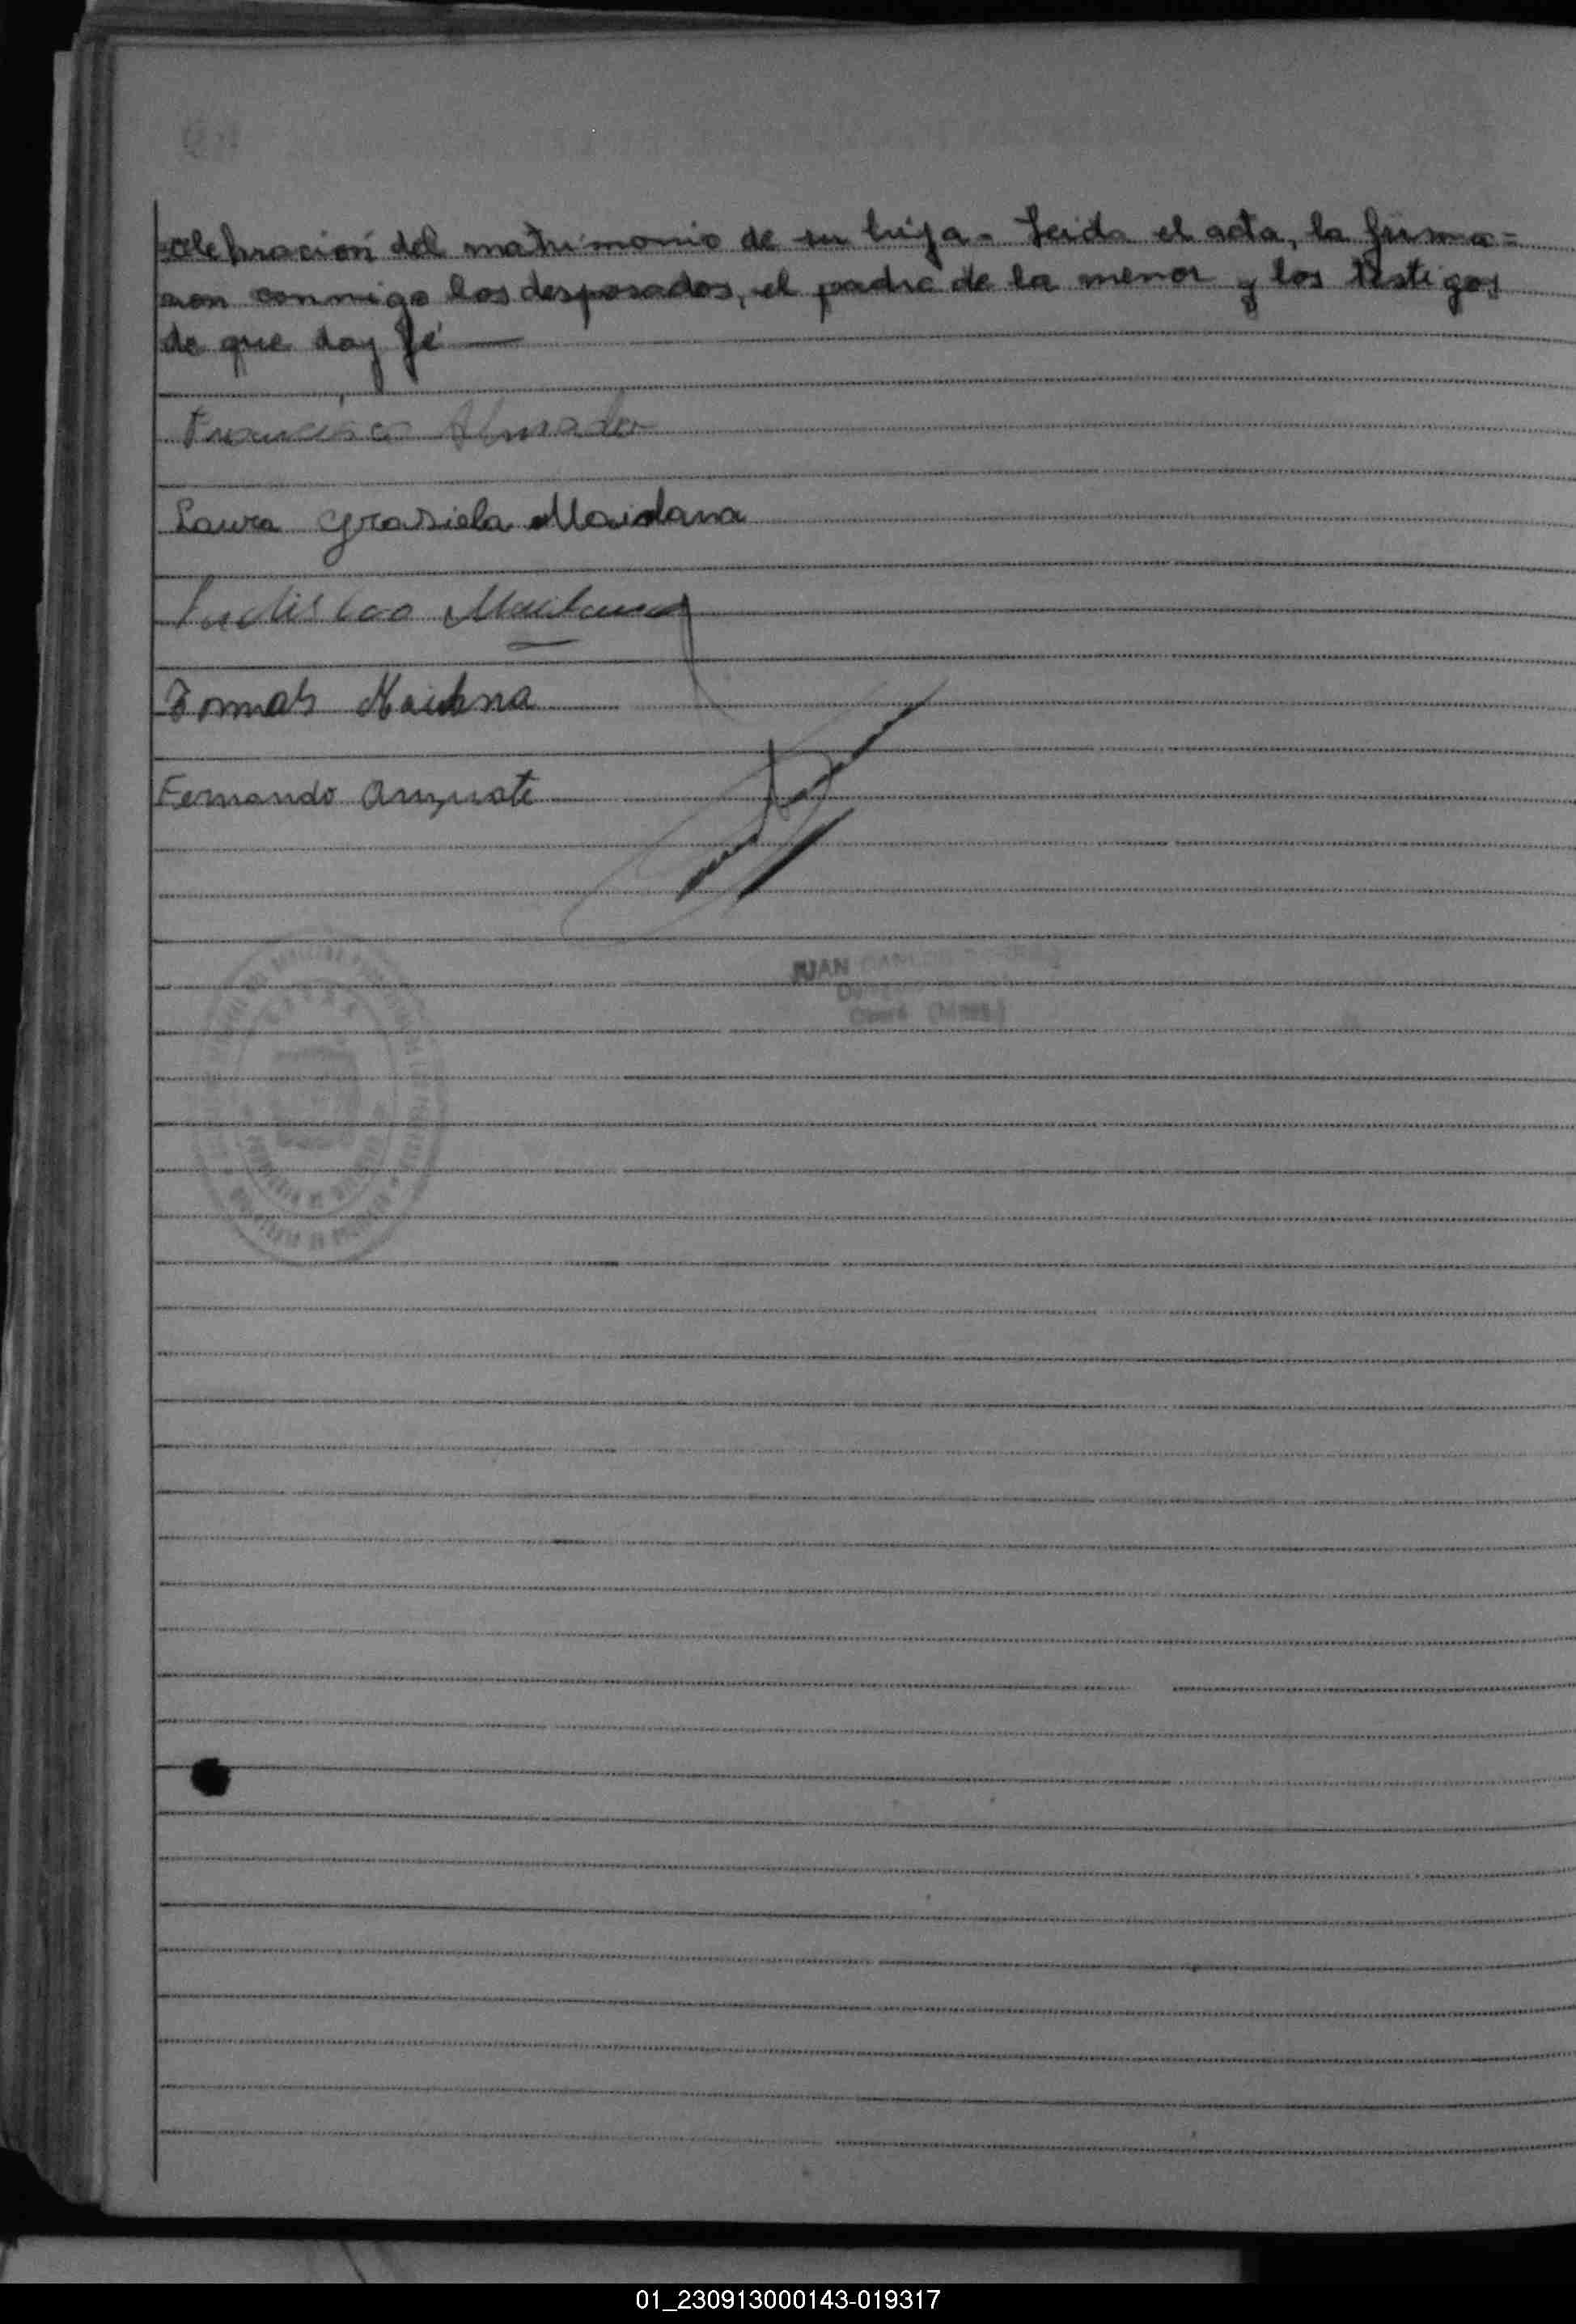 celebración del matrimonio de su hija - Leida el acta, la firma=
ron conmigo los desposados, el padre de la menor y los testigos
de que doy fé —
Francisco Almada
Laura Grasiela Maidana
Ladislao Maidana
Tomas Maidana
Fernando
JUAN CARLOS
Oberá (Mnes.)
PROVINCIA DE MISIONES
01_230913000143-019317